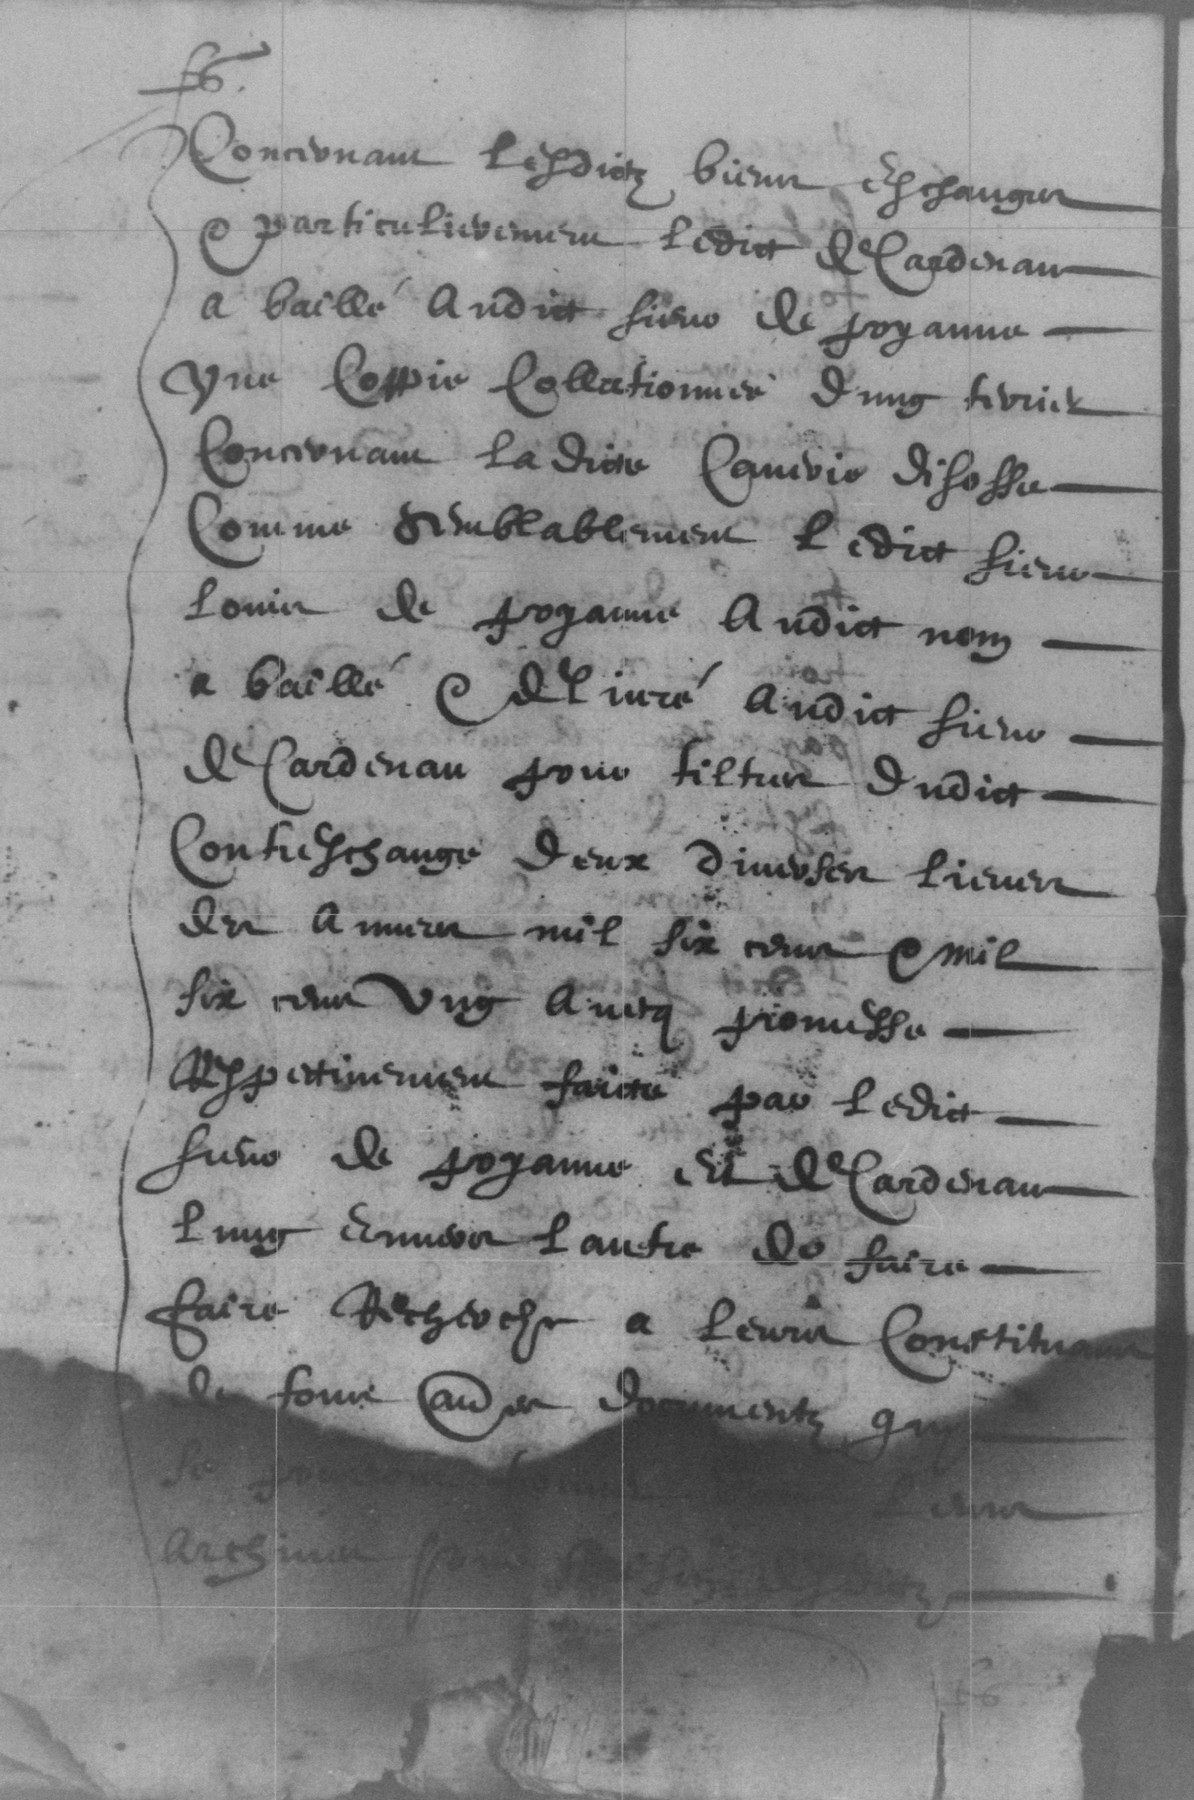 56.
Concernant lesdictz biens eschanges
e particulierement ledict de Cardenau
a baillé Audict sieur de poyanne
Vne Coppie Collationnée dung terrier
Concernant ladicte Cauerie
Comme semblablement ledict sieur
louis de poyanne Audict nom
a baillé e deliuré Audict sieur
de Cardenau pour tiltres dudict
Contreschange deux diuerses lieues
des Annees mil six cens e mil
six cens Vng Auecq promesse
Respectiuement faicte par ledict
sieur de poyanne et de Cardenau
lung enuers lautre de faire
faire Recherche a leurs Constituans
de tous documentz quy
se pourront leurs
Archiues pour